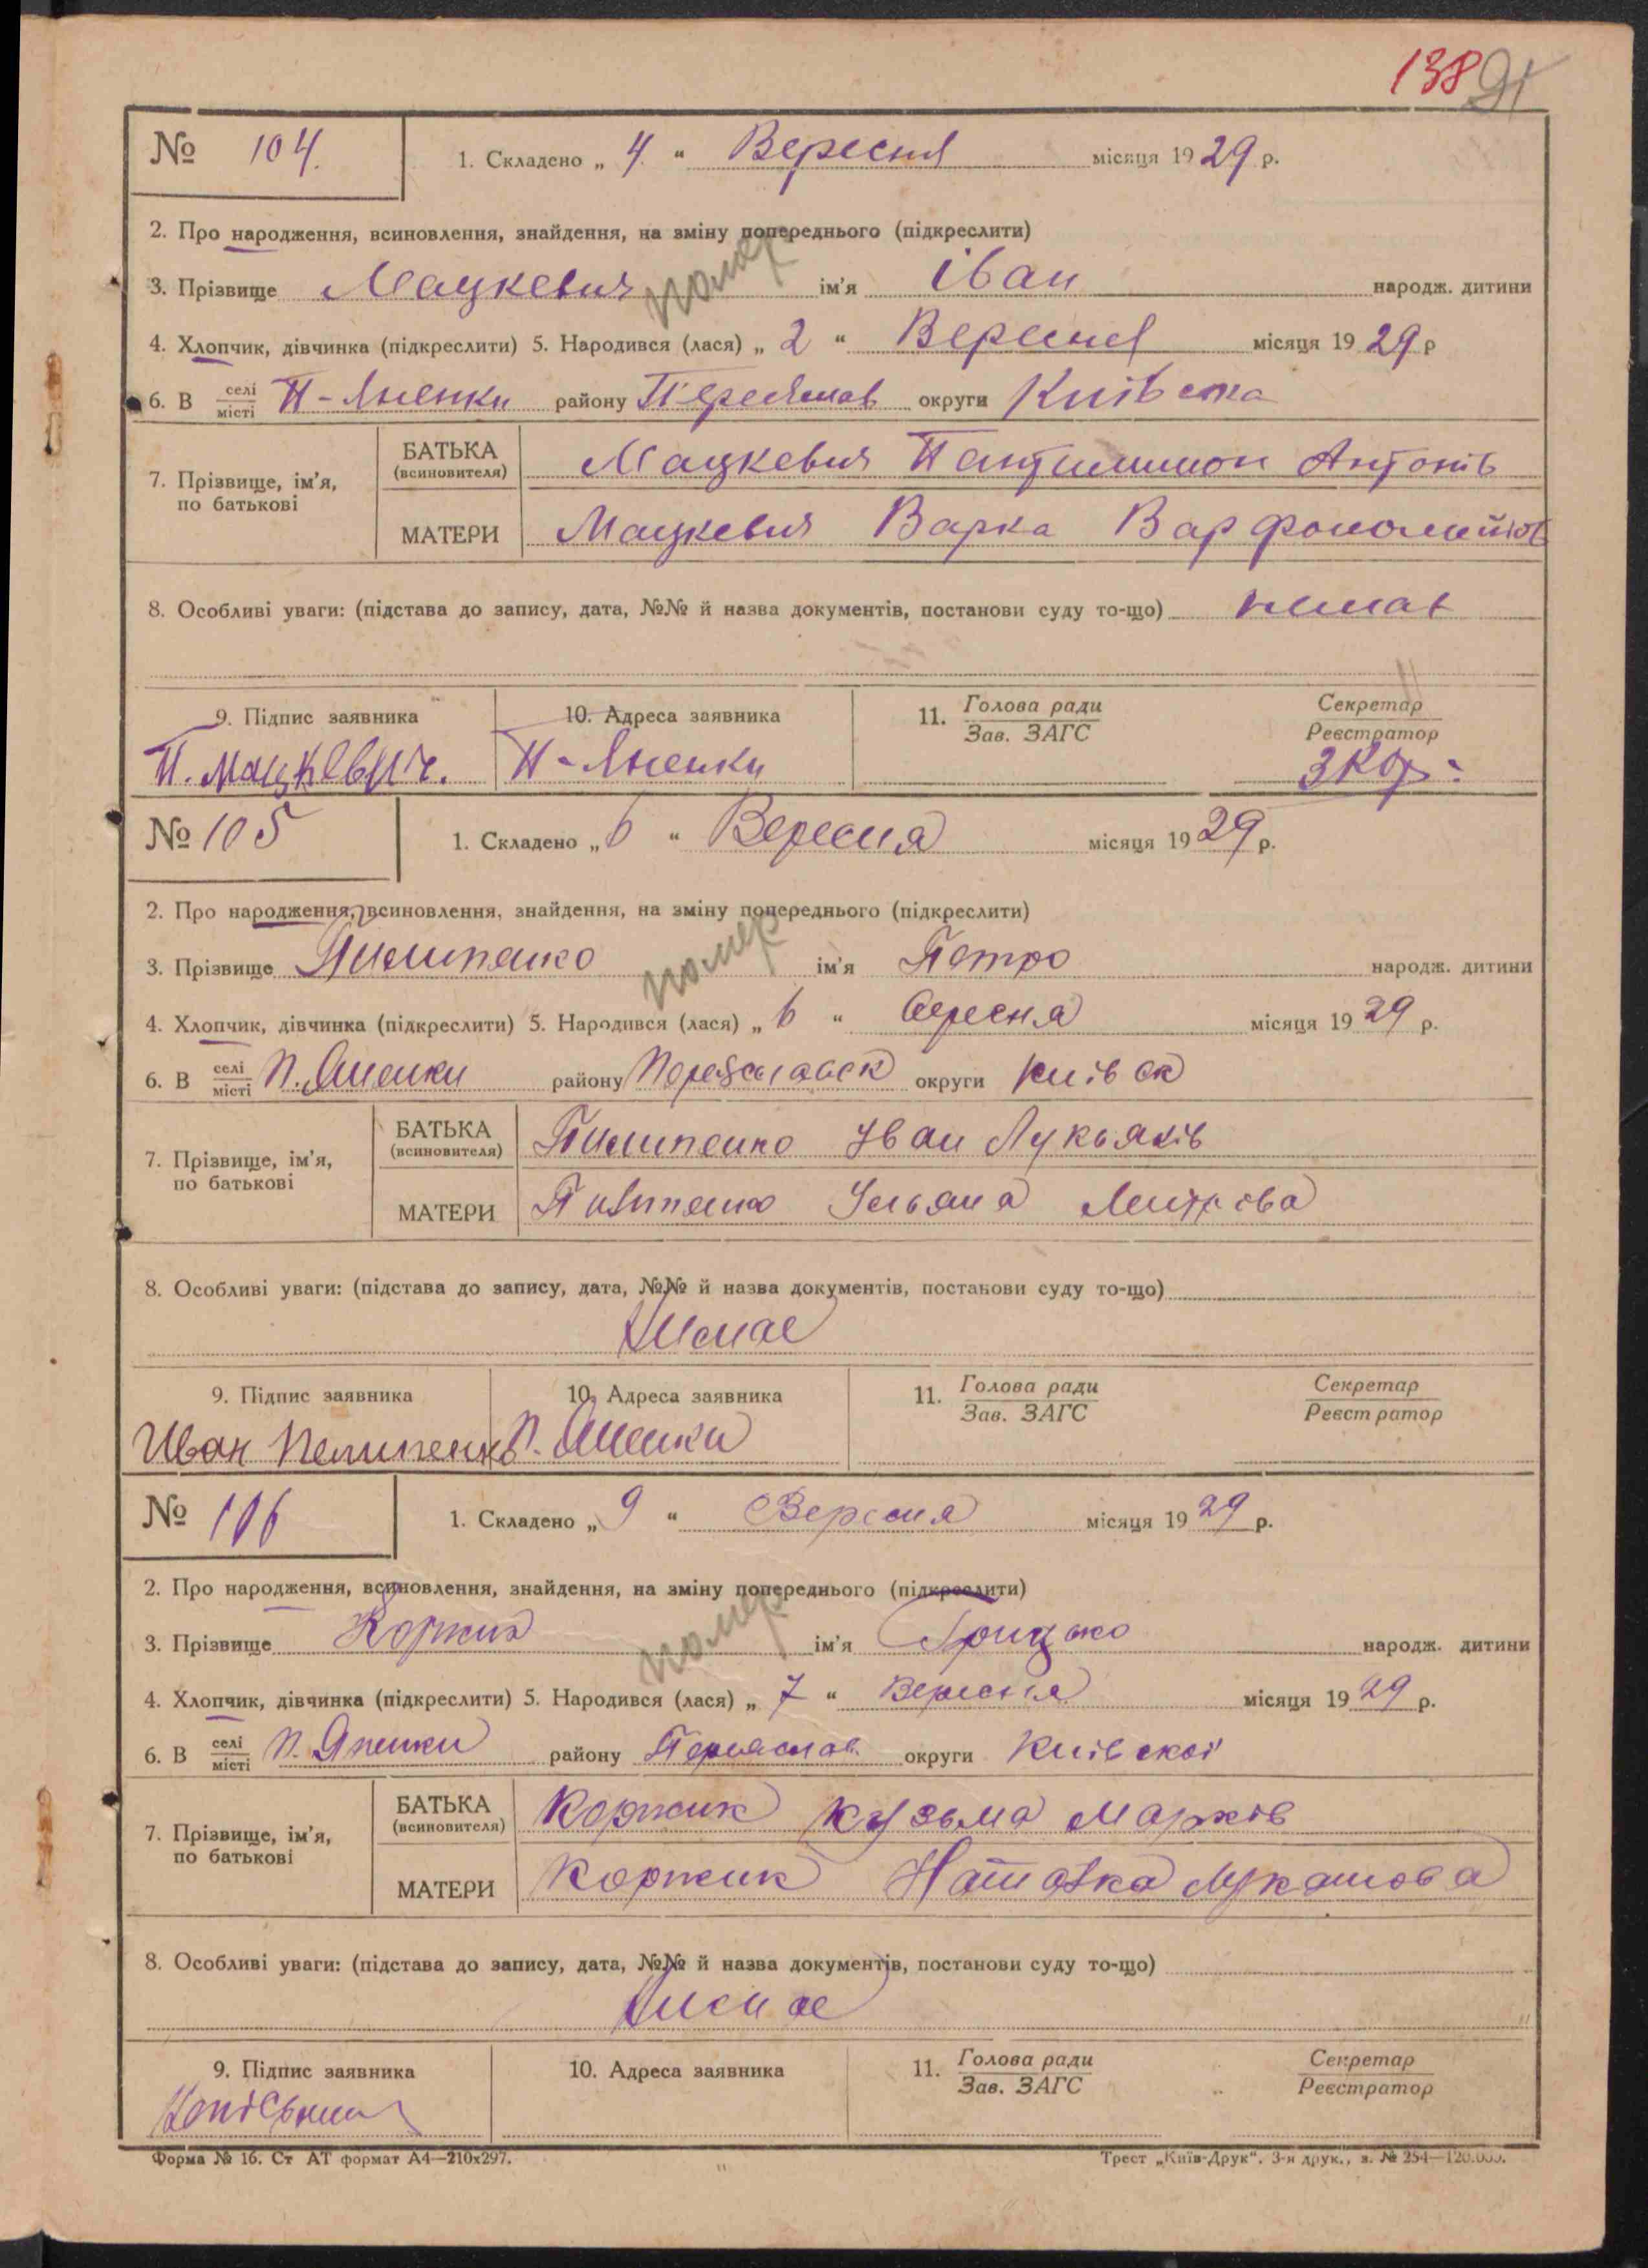 138 91
№ 104. 1. Складено „ 4 “ Вересня місяця 1929 р.
2. Про народження, всиновлення, знайдення, на зміну попереднього (підкреслити)
помер
3. Прізвище Мацкевич ім'я Іван народж. дитини
4. Хлопчик, дівчинка (підкреслити) 5. Народився (лася) „ 2 “ Вересня місяця 1929 р
6. В селі/місті П-Яненки району Переяслав округи Київська
7. Прізвище, ім'я, по батькові
БАТЬКА (всиновителя) Мацкевич Пантилимон Антонів
МАТЕРИ Мацкевич Варка Варфоломейов
8. Особливі уваги: (підстава до запису, дата, №№ й назва документів, постанови суду то-що) немає
9. Підпис заявника 10. Адреса заявника 11. Голова ради/Зав. ЗАГС Секретар/Реєстратор
П. Мацкевич. П-Яненки
№ 105 1. Складено „ 6 “ Вересня місяця 1929 р.
2. Про народження, всиновлення, знайдення, на зміну попереднього (підкреслити)
помер
3. Прізвище Пилипенко ім'я Петро народж. дитини
4. Хлопчик, дівчинка (підкреслити) 5. Народився (лася) „ 6 “ вересня місяця 1929 р.
6. В селі/місті П. Яненки району Переяславск округи Київск
7. Прізвище, ім'я, по батькові
БАТЬКА (всиновителя) Пилипенко Іван Лукьянів
МАТЕРИ Пилипенко Ульяна
8. Особливі уваги: (підстава до запису, дата, №№ й назва документів, постанови суду то-що)
Немає
9. Підпис заявника 10. Адреса заявника 11. Голова ради/Зав. ЗАГС Секретар/Реєстратор
Иван Пелипенко П. Яненки
№ 106 1. Складено „ 9 “ Вересня місяця 1929 р.
2. Про народження, всиновлення, знайдення, на зміну попереднього (підкреслити)
помер
3. Прізвище Коржик ім'я Грицько народж. дитини
4. Хлопчик, дівчинка (підкреслити) 5. Народився (лася) „ 7 “ Вересня місяця 1929 р.
6. В селі/місті П. Яненки району Переяслав. округи Київської
7. Прізвище, ім'я, по батькові
БАТЬКА (всиновителя) Коржик Кузьма Марків
МАТЕРИ Коржик Наталка Лукашова
8. Особливі уваги: (підстава до запису, дата, №№ й назва документів, постанови суду то-що)
Немає
9. Підпис заявника 10. Адреса заявника 11. Голова ради/Зав. ЗАГС Секретар/Реєстратор
Форма № 16. Ст АТ формат А4—210х297. Трест „Київ-Друк“. 3-я друк., з. № 254—120.000.